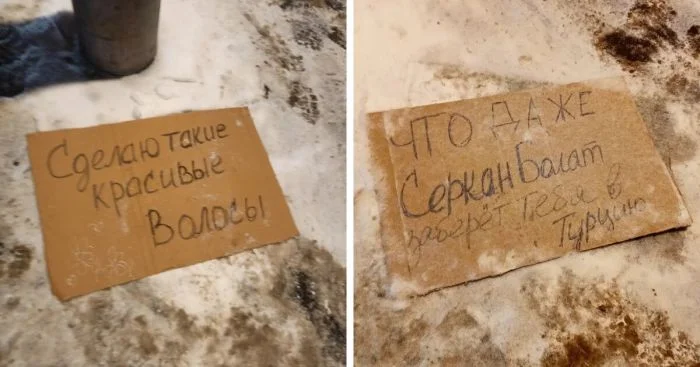 Сделаю такие
красивые
Волосы
ЧТО ДАЖЕ
Серкан Болат
заберёт Тебя в
Турцию